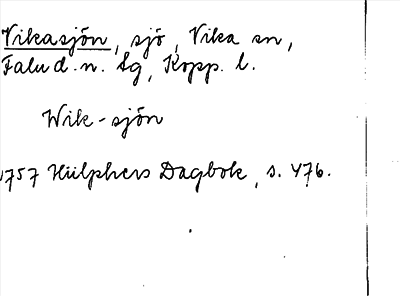 Vikasjön, sjö, Vika sn,
Falu d. n. lg, Kopp. l.
Wik-sjön
1757 Hülphers Dagbok, s. 476.